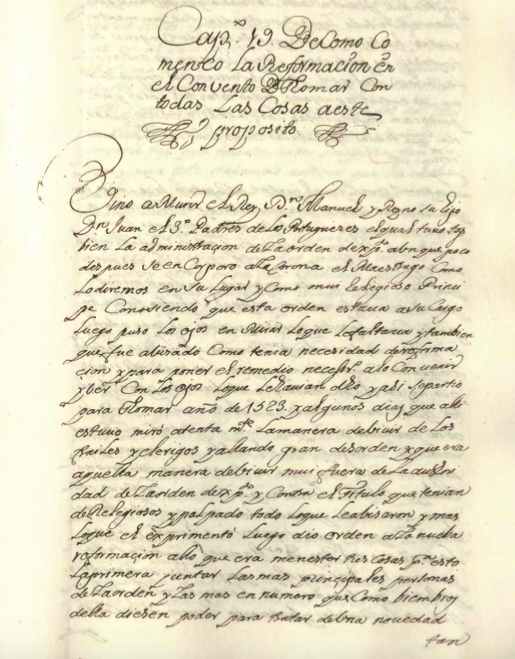 Cap.º 19. De como co
menço la Reformacion en
el Convento D Thomar con
todas las Cosas aeste
proposito
Vino a Murir el Rey Dn. Manuel y Reyno su hijo
Dn. Juan el 3.º Padre de los Portugueses el qual tuvo tan
bien la administracion de la orden de xpo. abnque poco
despues se en Corporo a la Corona el Maestrazgo Como
lo diremos en su lugar y Como mui Religioso Princi
pe Conosciendo que esta orden estava a su Cargo
luego puso los ojos en Mirar loque le faltava y tambien
que fue abisado Como tenia necesidad de reforma
cion y para poner el remedio necess.º alo Convenir
y ber Con los ojos loque le havian dho y asi se partio
para Thomar año de 1523. y algunos dias que alli
estuvo miró atenta mte. la manera de biuir de los
frailes y clerigos y allando gran desorden y que era
aquella manera de biuir mui fuera de la auctori
dad de la orden de xpo. y Contra el titulo que tenian
de Religiosos y palpado todo loque le abisaron y mas
loque el experimentó luego dio orden a la nueba
reformacion allo que era menester tres cosas pa. esto
la primera juntar las mas principales personas
de la orden y las mas en numero que Como biembros
della diesen poder para tratar de una novedad
tan